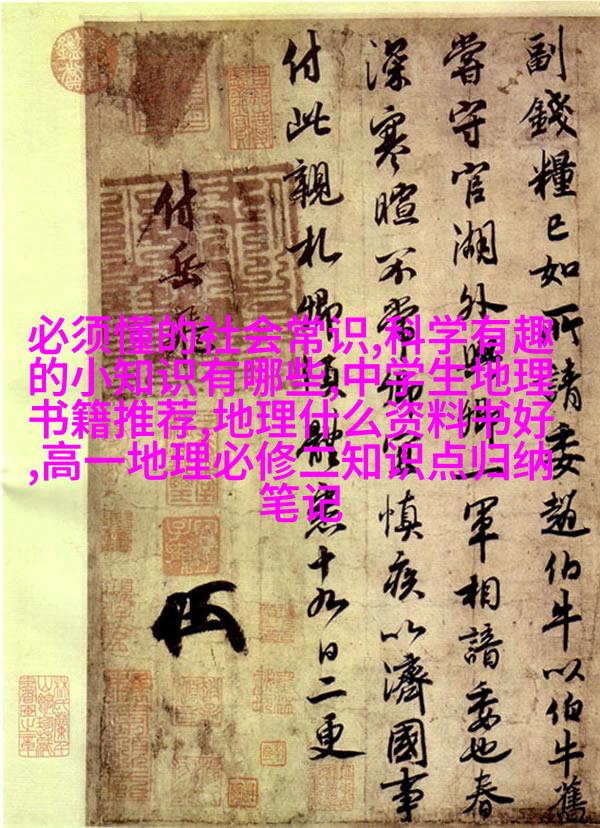 必须懂的社会常识,科学有趣
的小知识有哪些,中学生地理
书籍推荐,地理什么资料书好
,高一地理必修二知识点归纳
笔记
副錢糧已如所請委趙伯牛以伯牛舊
嘗守官湖外與卿一軍相諳委也春
深寒暄不常卿宜慎疾以濟國事
付此親札卿須體悉十九日二更
付岳飛